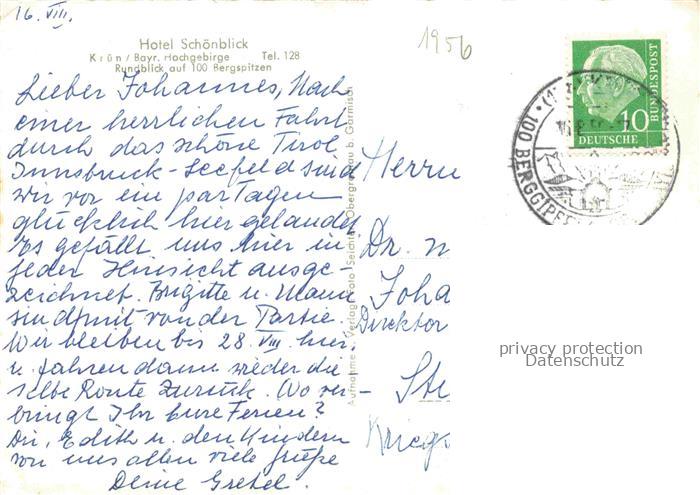 16. VIII.
1956
Hotel Schönblick
Krün / Bayr. Hochgebirge Tel. 128
Rundblick auf 100 Bergspitzen
Lieber Johannes, Nach
einer herrlichen Fahrt
durch das schöne Tirol
Innsbruck-Seefeld sind
wir vor ein par Tagen
glücklich hier gelandet.
Es gefällt uns hier in
jeder Hinsicht ausge-
zeichnet. Brigitte u. Mann
sind mit von der Partie.
Wir bleiben bis 28. VIII. hier
u. fahren dann wieder die-
selbe Route zurück. Wo ver-
bringt Ihr Eure Ferien?
Dir, Edith u. den Kindern
von uns allen viele Grüße
Deine Gretel.
Aufnahme u. Verlag Foto Obergrainau b. Garmisch
Herrn
Dr. m
Joha
Direktor
Stu
Kriegs
10
DEUTSCHE
BUNDESPOST
100 BERGGIPFE
privacy protection
Datenschutz